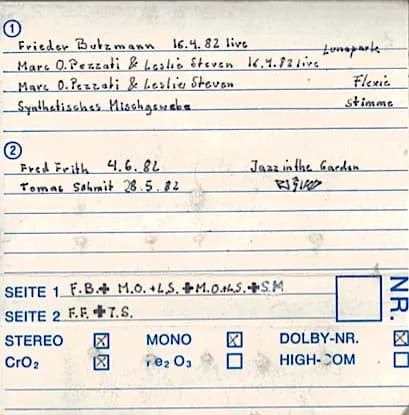 ①
Frieder Butzmann 16.4.82 live Lunapark
Marc O. Pezzati & Leslie Steven 16.4.82 live
Marc O. Pezzati & Leslie Steven Flexie
Synthetisches Mischgewebe Stimme
②
Fred Frith 4.6.82 Jazz in the Garden
Tomas Schmit 28.5.82
SEITE 1 F.B.+ M.O.+L.S. + M.O.+L.S. + S.M
SEITE 2 F.F. + T.S.
NR.
STEREO ☒ MONO ☒ DOLBY-NR. ☒
CrO₂ ☒ Fe₂O₃ ☐ HIGH-COM ☐